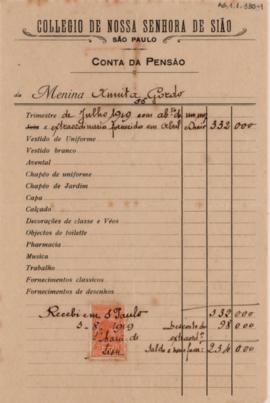 COLLEGIO DE NOSSA SENHORA DE SIÃO
SÃO PAULO
CONTA DA PENSÃO
da Menina Annita Gordo
Trimestre de Julho 1919 com
e extraordinario em Abril 332 000
Vestido de Uniforme
Vestido branco
Avental
Chapéo de uniforme
Chapéo de Jardim
Capa
Calçado
Decorações de classe e Véos
Objectos de toilette
Pharmacia
Musica
Trabalho
Fornecimentos classicos
Fornecimentos de desenhos
Recebi em S Paulo 332 000
5-8-1919 Desconto do 98 000
Saldo a 234 000